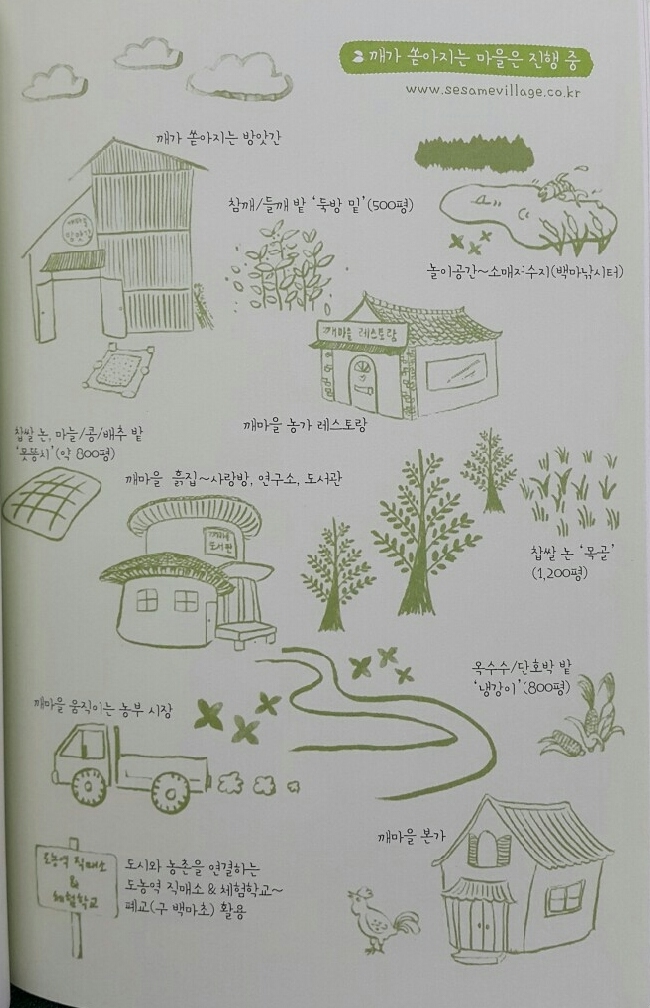 깨가 쏟아지는 마을은 진행 중
www.sesamevillage.co.kr
깨가 쏟아지는 방앗간
깨마을
방앗간
참깨/들깨 밭 ‘둑방 밑’(500평)
놀이공간~소매저수지(백마낚시터)
깨마을 레스토랑
깨마을 농가 레스토랑
찹쌀 논, 마늘/콩/배추 밭
‘못똥치’(약 800평)
깨마을 흙집~사랑방, 연구소, 도서관
깨마을
도서관
찹쌀 논 ‘목골’
(1,200평)
옥수수/단호박 밭
‘냉강이’(800평)
깨마을 움직이는 농부 시장
깨마을 본가
도농역 직매소
&
체험학교
도시와 농촌을 연결하는
도농역 직매소 & 체험학교~
폐교(구 백마초) 활용